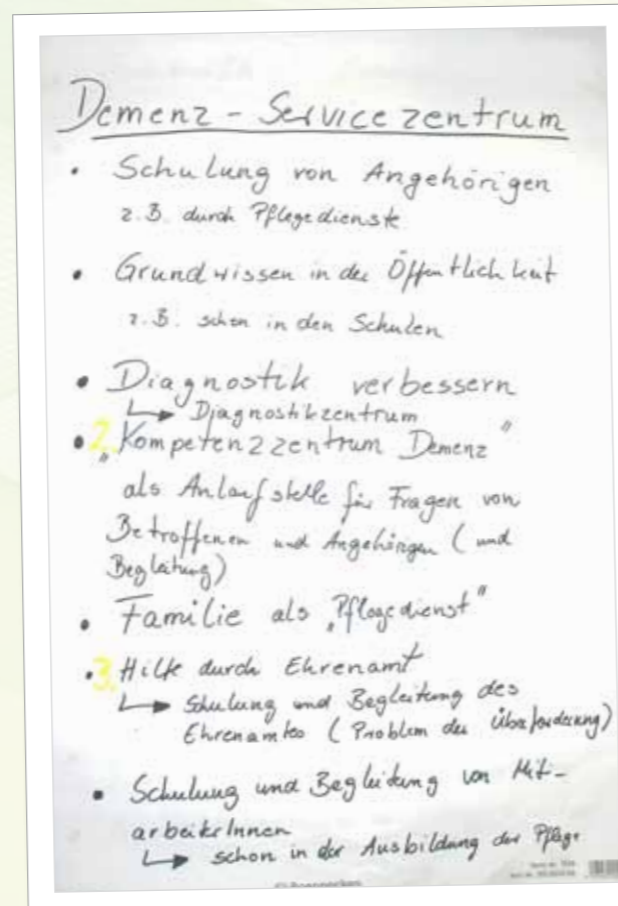 Demenz - Servicezentrum
• Schulung von Angehörigen
z.B. durch Pflegedienste
• Grundwissen in der Öffentlichkeit
z.B. schon in den Schulen
• Diagnostik verbessern
↳ Diagnostikzentrum
• 2. „Kompetenzzentrum Demenz"
als Anlaufstelle für Fragen von
Betroffenen und Angehörigen (und
Begleitung)
• Familie als „Pflegedienst"
• 3. Hilfe durch Ehrenamt
↳ Schulung und Begleitung des
Ehrenamtes (Problem der Überforderung)
• Schulung und Begleitung von Mit-
arbeiterInnen
↳ schon in der Ausbildung der Pflege